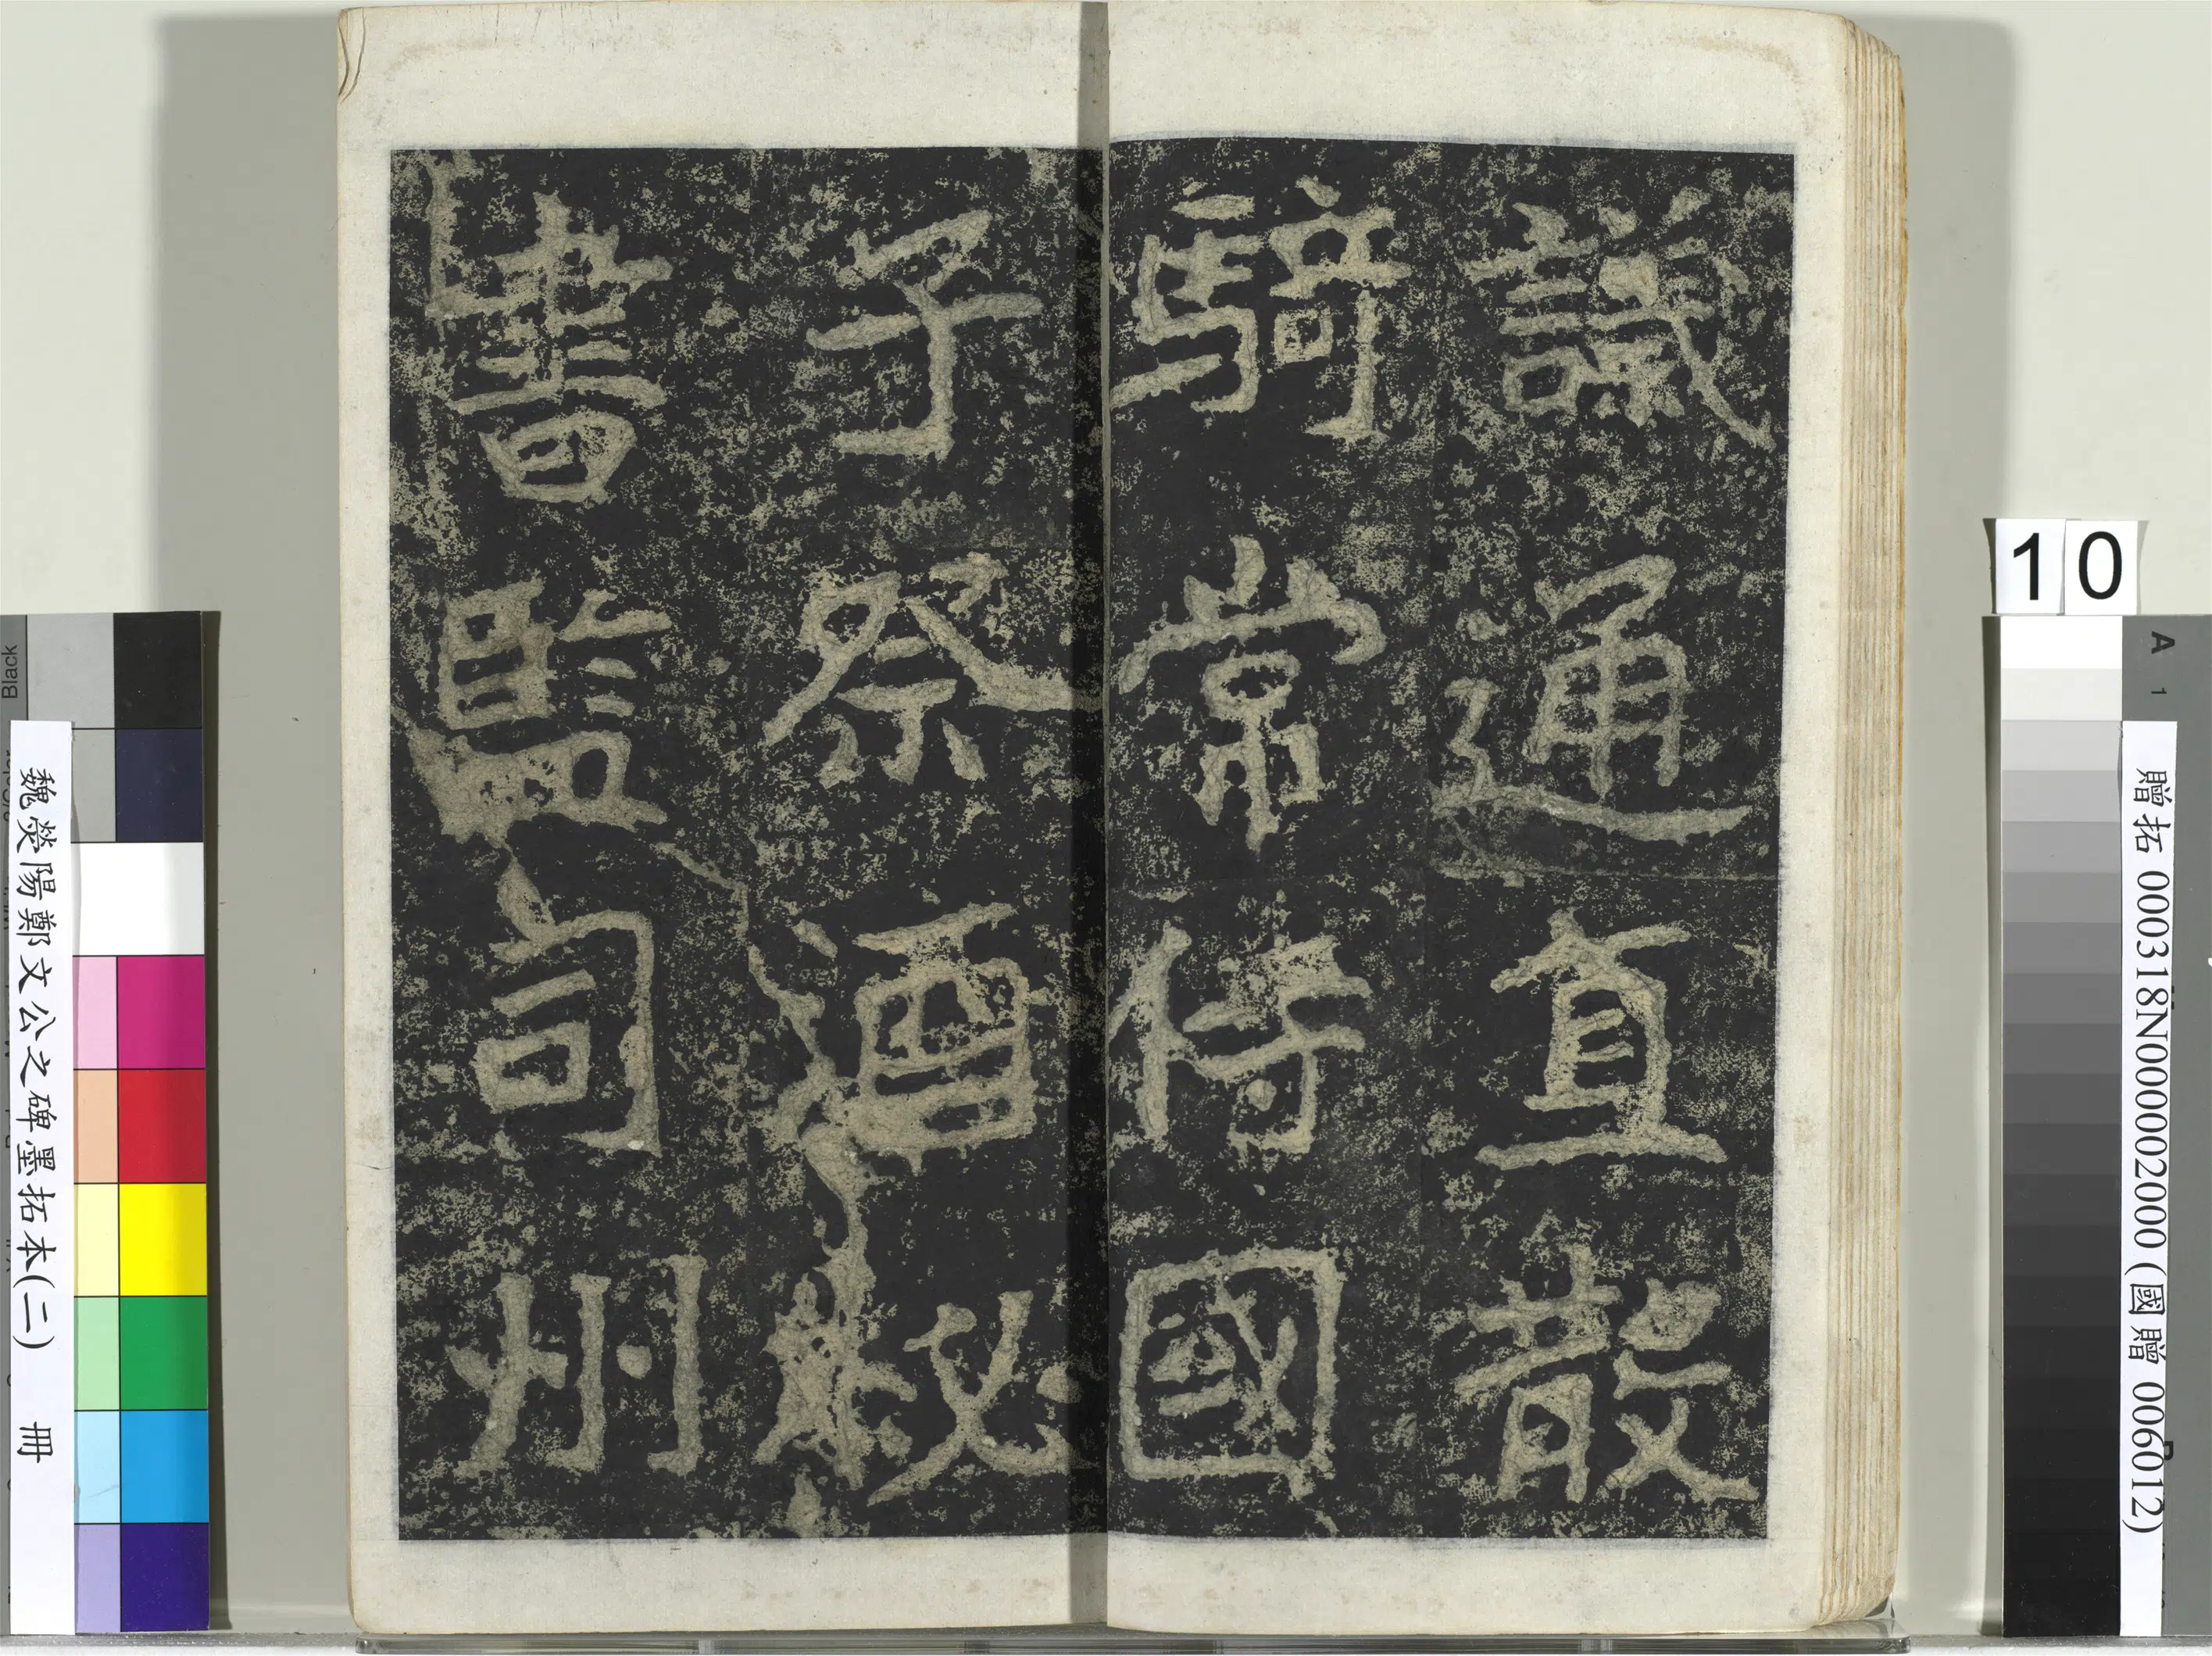 議通直散
騎常侍國
子祭酒秘
書監司州
10
贈拓 000318N000002000 (國贈 006012)
魏滎陽鄭文公之碑墨拓本(二) 冊
Black
A
1